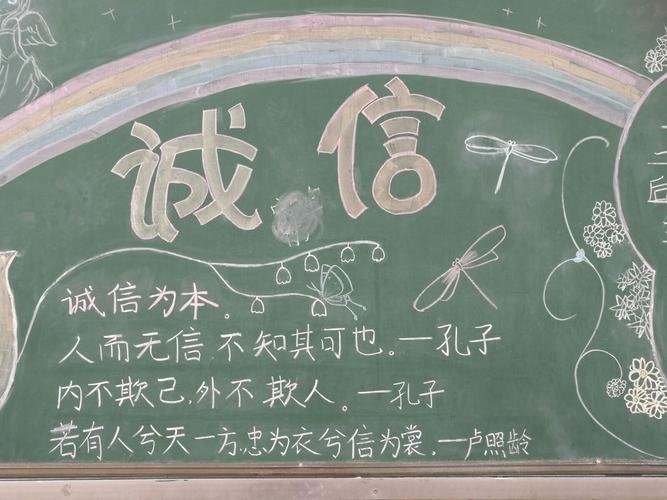 诚信
诚信为本。
人而无信，不知其可也。—孔子
内不欺己，外不欺人。—孔子
若有人兮天一方，忠为衣兮信为裳。—卢照龄
后